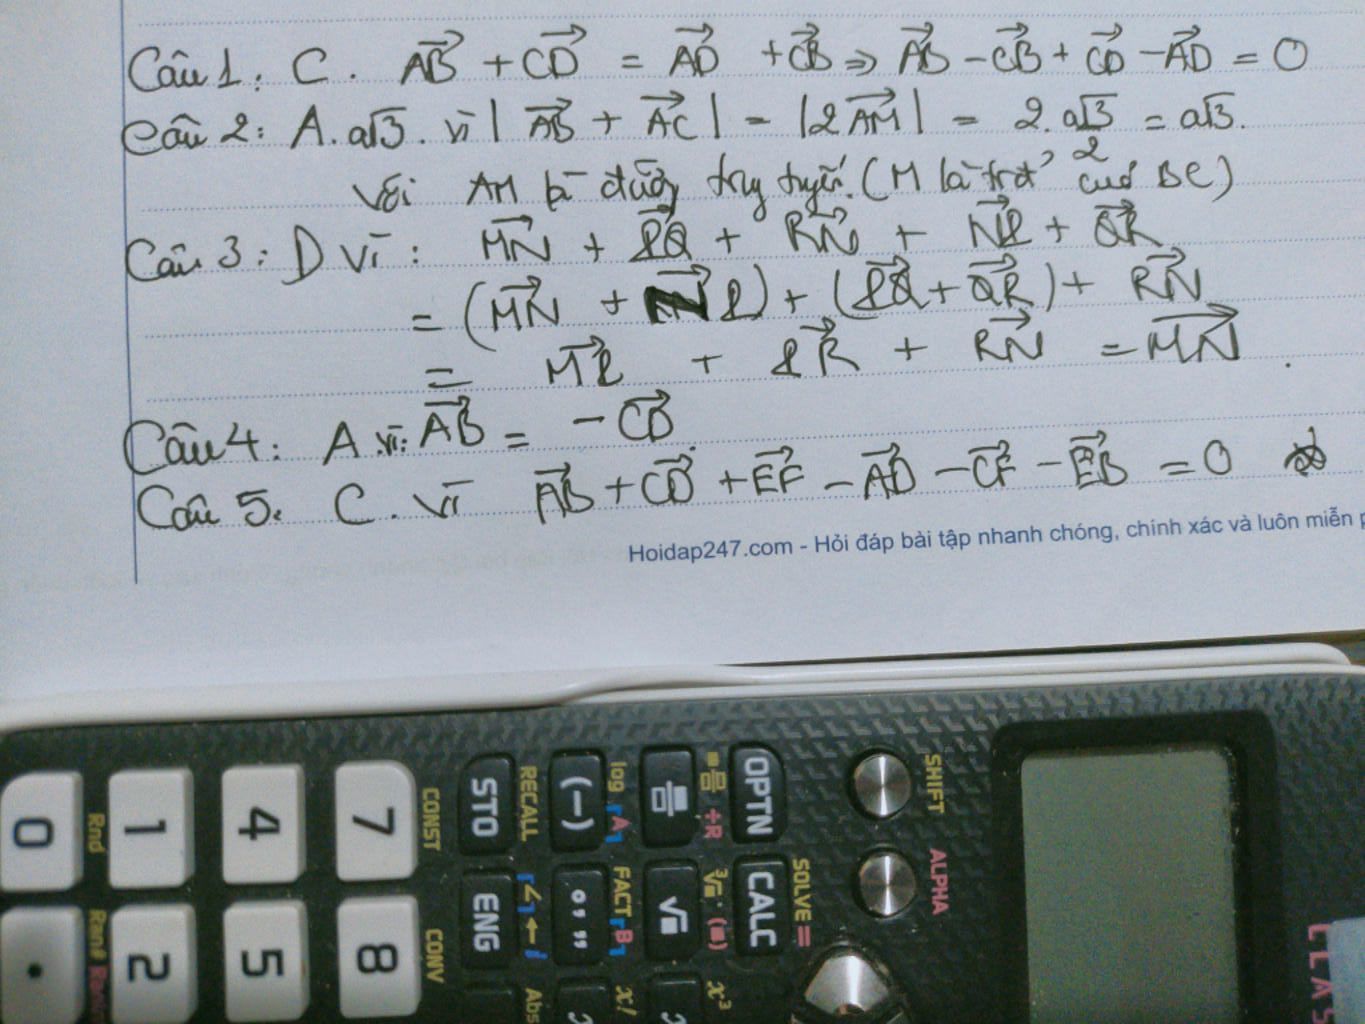 Câu 1: C. AB + CD = AD + CB => AB - CB + CD - AD = 0
Câu 2: A. a√3. vì | AB + AC | = |2AM| = 2. a√3/2 = a√3.
Với AM là đường trung tuyến. (M là trđ' của BC)
Câu 3: D vì: MN + PQ + RN + NP + QR
= (MN + NP) + (PQ + QR) + RN
= MP + PR + RN = MN.
Câu 4: A. vì: AB = - CD.
Câu 5. C. vì AB + CD + EF - AD - CF - EB = 0
Hoidap247.com - Hỏi đáp bài tập nhanh chóng, chính xác và luôn miễn p
SHIFT
ALPHA
SOLVE =
OPTN
CALC
÷R
³√
(■)
x³
√■
log
A
FACT
B
x!
(−)
° ' "
RECALL
∠
←
i
Abs
STO
ENG
CONST
CONV
7
8
4
5
1
2
Rnd
Ran#
0
.
CLAS